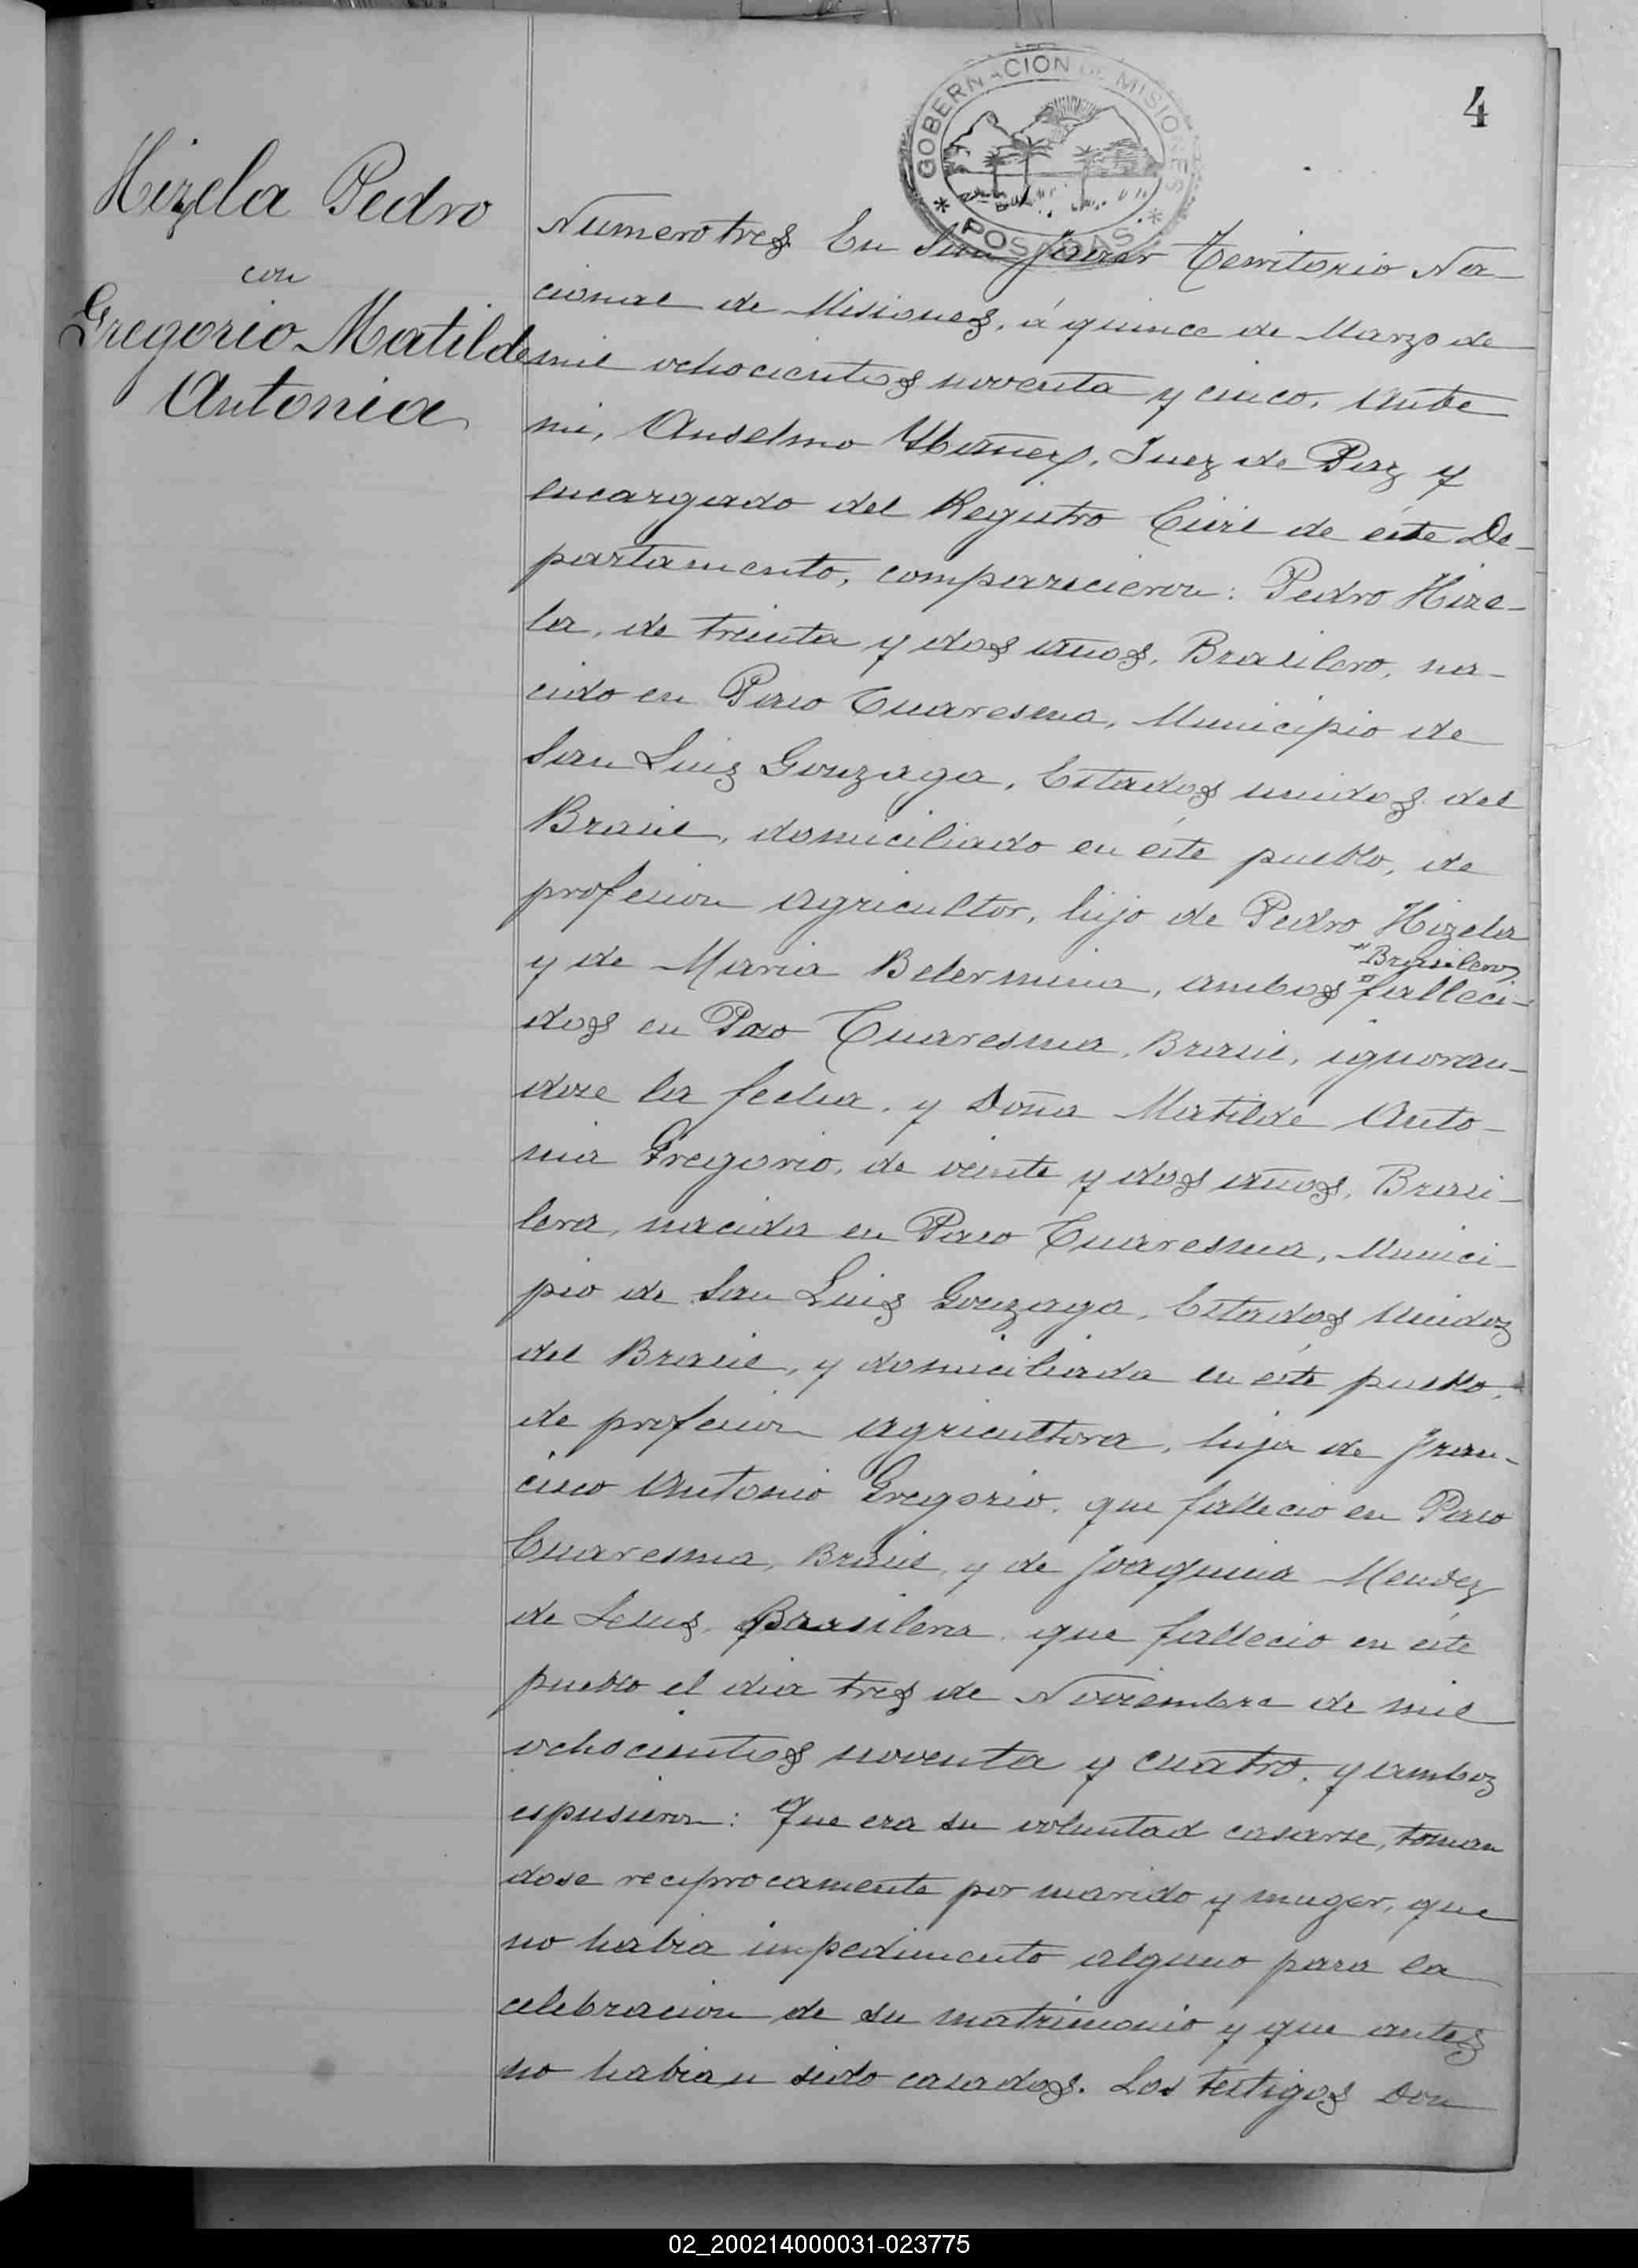 4
GOBERNACION DE MISIONES
* POSADAS *
Hizela Pedro
con
Gregorio Matilde
Antonia
Numero tres. En San Javier Territorio Na-
cional de Misiones, á quince de Marzo de
mil ochocientos noventa y cinco, Ante
mi, Anselmo Ybañez, Juez de Paz y
encargado del Registro Civil de éste De-
partamento, comparecieron: Pedro Hize-
la, de treinta y dos años, Brasilero, na-
cido en Paso Cuaresma, Municipio de
San Luis Gonzaga, Estados unidos del
Brasil, domiciliado en éste pueblo, de
profesion agricultor, hijo de Pedro Hizela
"Brasileros
y de Maria Belermina, ambos falleci-
dos en Paso Cuaresma, Brasil, ignoran-
dose la fecha, y Doña Matilde Anto-
nia Gregorio, de veinte y dos años, Brasi-
lera, nacida en Paso Cuaresma, Munici-
pio de San Luis Gonzaga, Estados Unidos
del Brasil, y domiciliada en éste pueblo,
de profesion agricultora, hija de Fran-
cisco Antonio Gregorio, que fallecio en Paso
Cuaresma, Brasil, y de Joaquina Mendez
de Jesus, Brasilera, que fallecio en éste
pueblo el dia tres de Noviembre de mil
ochocientos noventa y cuatro, y ambos
espusieron: Que era su voluntad casarse, toman
dose reciprocamente por marido y muger, que
no habia impedimento alguno para la
celebracion de su matrimonio y que antes
no habian sido casados. Los testigos Don
02_200214000031-023775